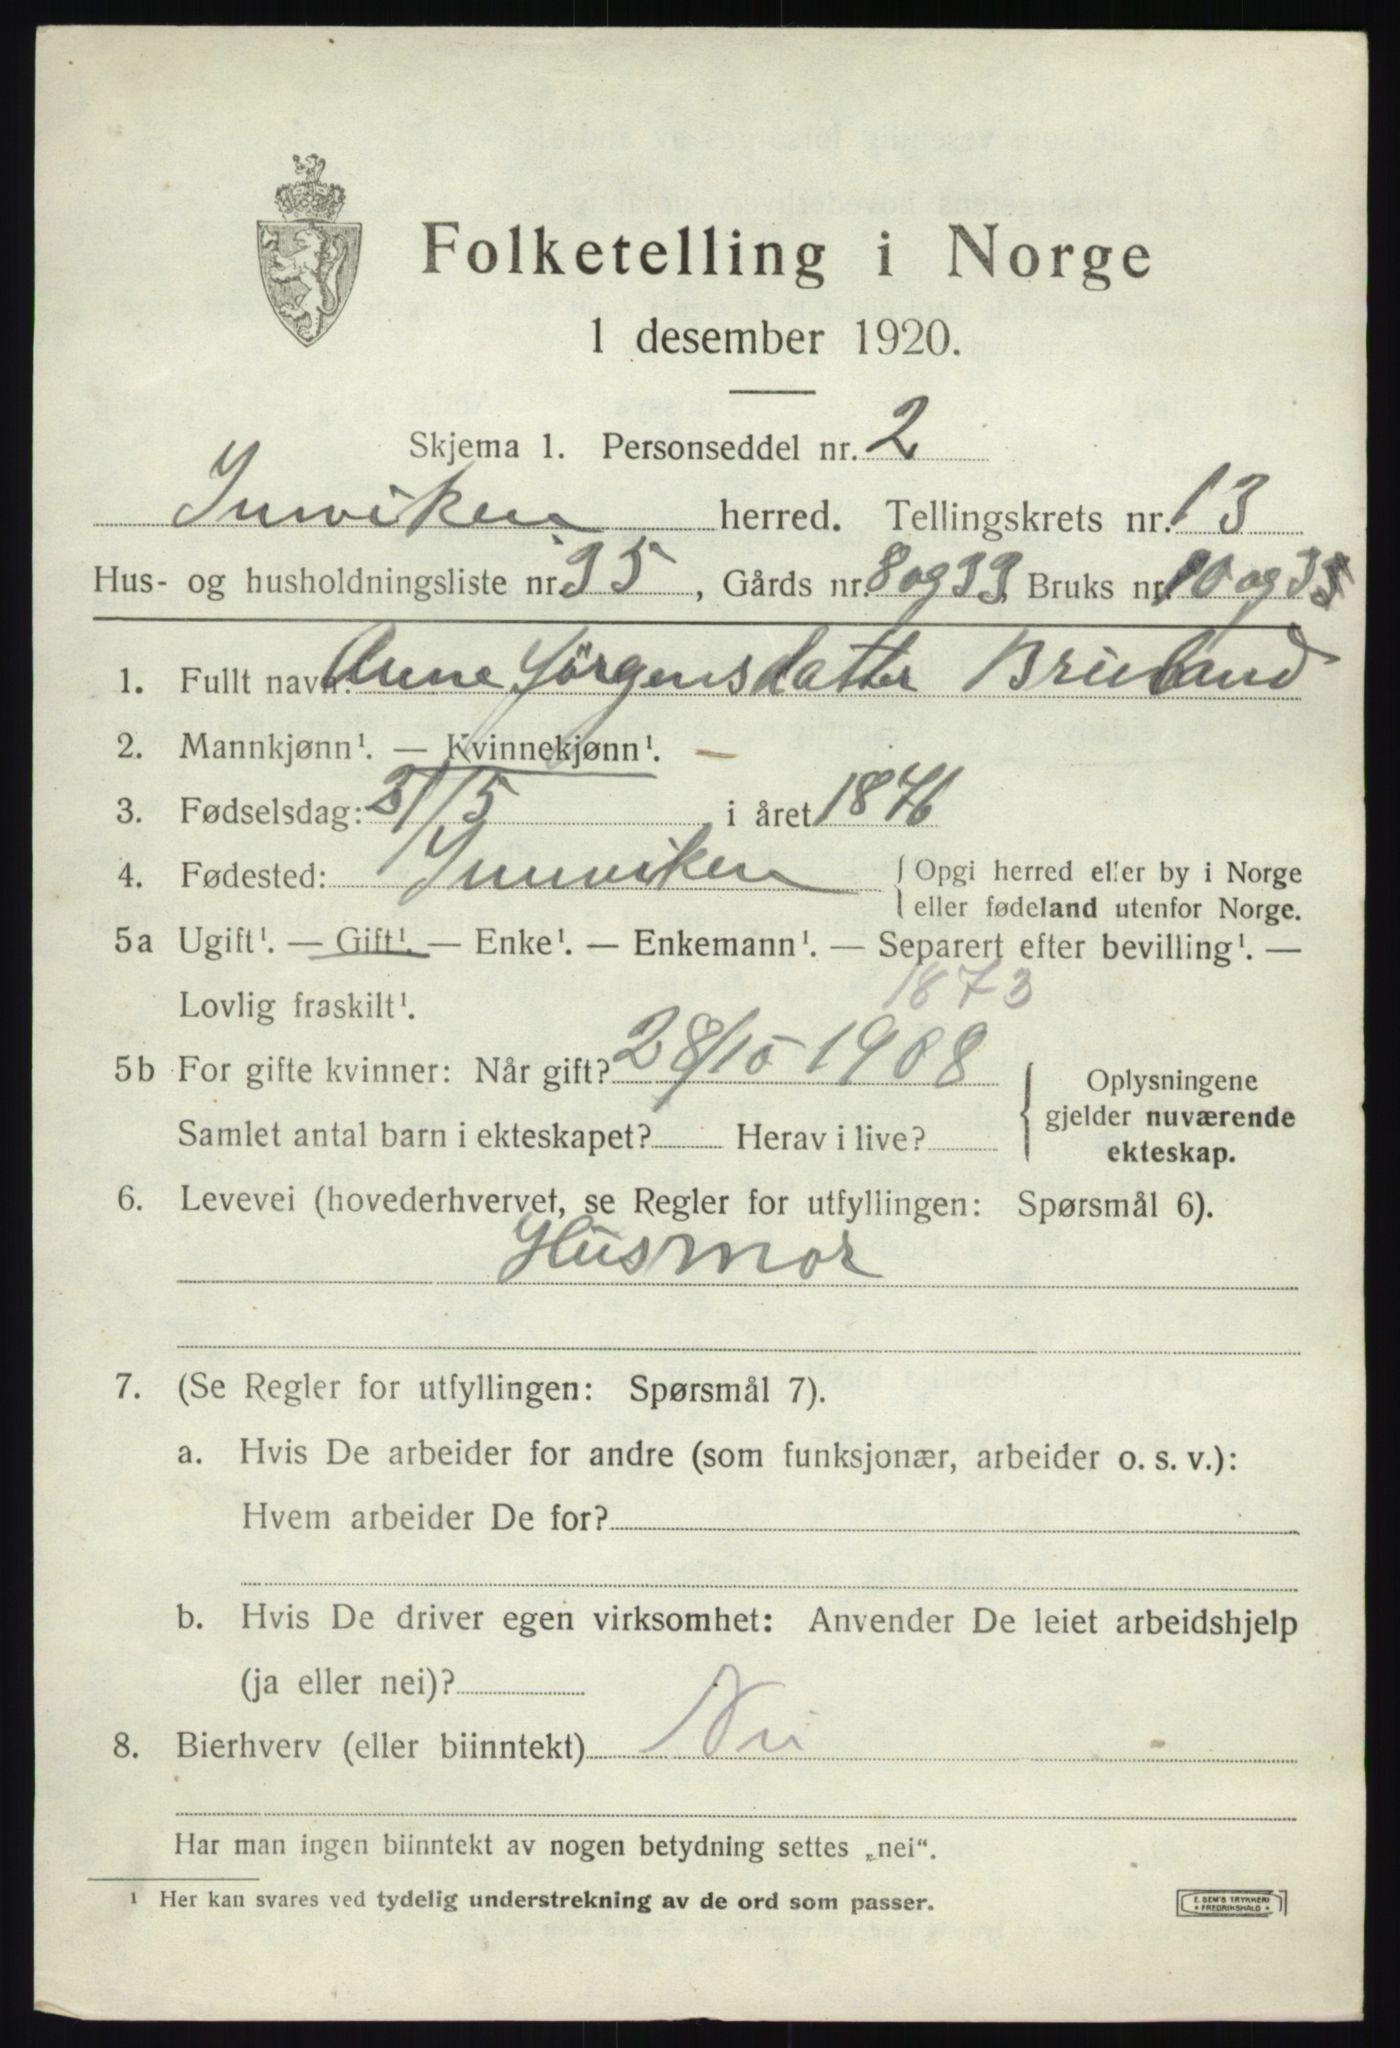 Folketelling i Norge
1 desember 1920.
Skjema 1. Personseddel nr. 2
Innviken herred. Tellingskrets nr. 13
Hus- og husholdningsliste nr. 35, Gårds nr. 8 og 33, Bruks nr. 10 og 33
1. Fullt navn: Anne Jørgensdatter Brieland
2. Mannkjønn¹. — Kvinnekjønn¹.
3. Fødselsdag: 31/5 i året 1876
4. Fødested: Innviken { Opgi herred eller by i Norge
eller fødeland utenfor Norge.
5a Ugift¹. — Gift¹. — Enke¹. — Enkemann¹. — Separert efter bevilling¹. —
Lovlig fraskilt¹. 1873
5b For gifte kvinner: Når gift? 28/10 1908 { Oplysningene
gjelder nuværende
Samlet antal barn i ekteskapet? Herav i live?
ekteskap.
6. Levevei (hovederhvervet, se Regler for utfyllingen: Spørsmål 6).
Husmor
7. (Se Regler for utfyllingen: Spørsmål 7).
a. Hvis De arbeider for andre (som funksjonær, arbeider o. s. v.):
Hvem arbeider De for?
b. Hvis De driver egen virksomhet: Anvender De leiet arbeidshjelp
(ja eller nei)?
8. Bierhverv (eller biinntekt) Nei
Har man ingen biinntekt av nogen betydning settes „nei“.
¹ Her kan svares ved tydelig understrekning av de ord som passer.
E. SEM'S TRYKKERI
* FREDRIKSHALD *